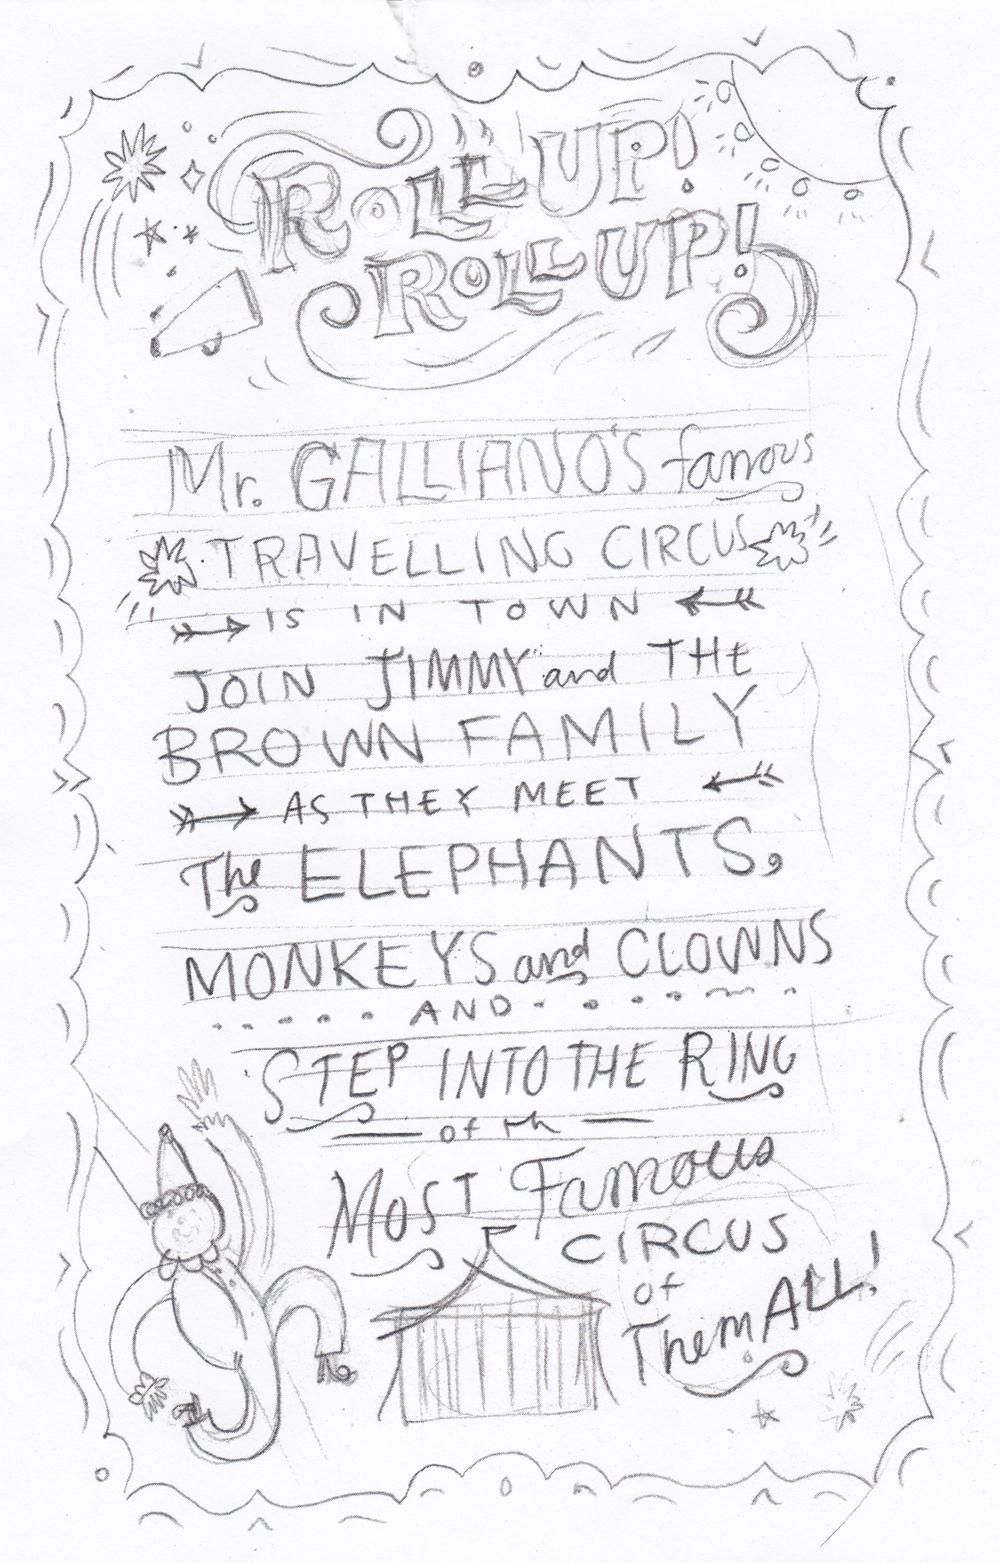 ROLL UP!
ROLL UP!
Mr. GALLIANO'S famous
TRAVELLING CIRCUS
IS IN TOWN
JOIN JIMMY and THE
BROWN FAMILY
AS THEY MEET
The ELEPHANTS,
MONKEYS and CLOWNS
AND
STEP INTO THE RING
of th
MOST Famous
CIRCUS
of
Them ALL!